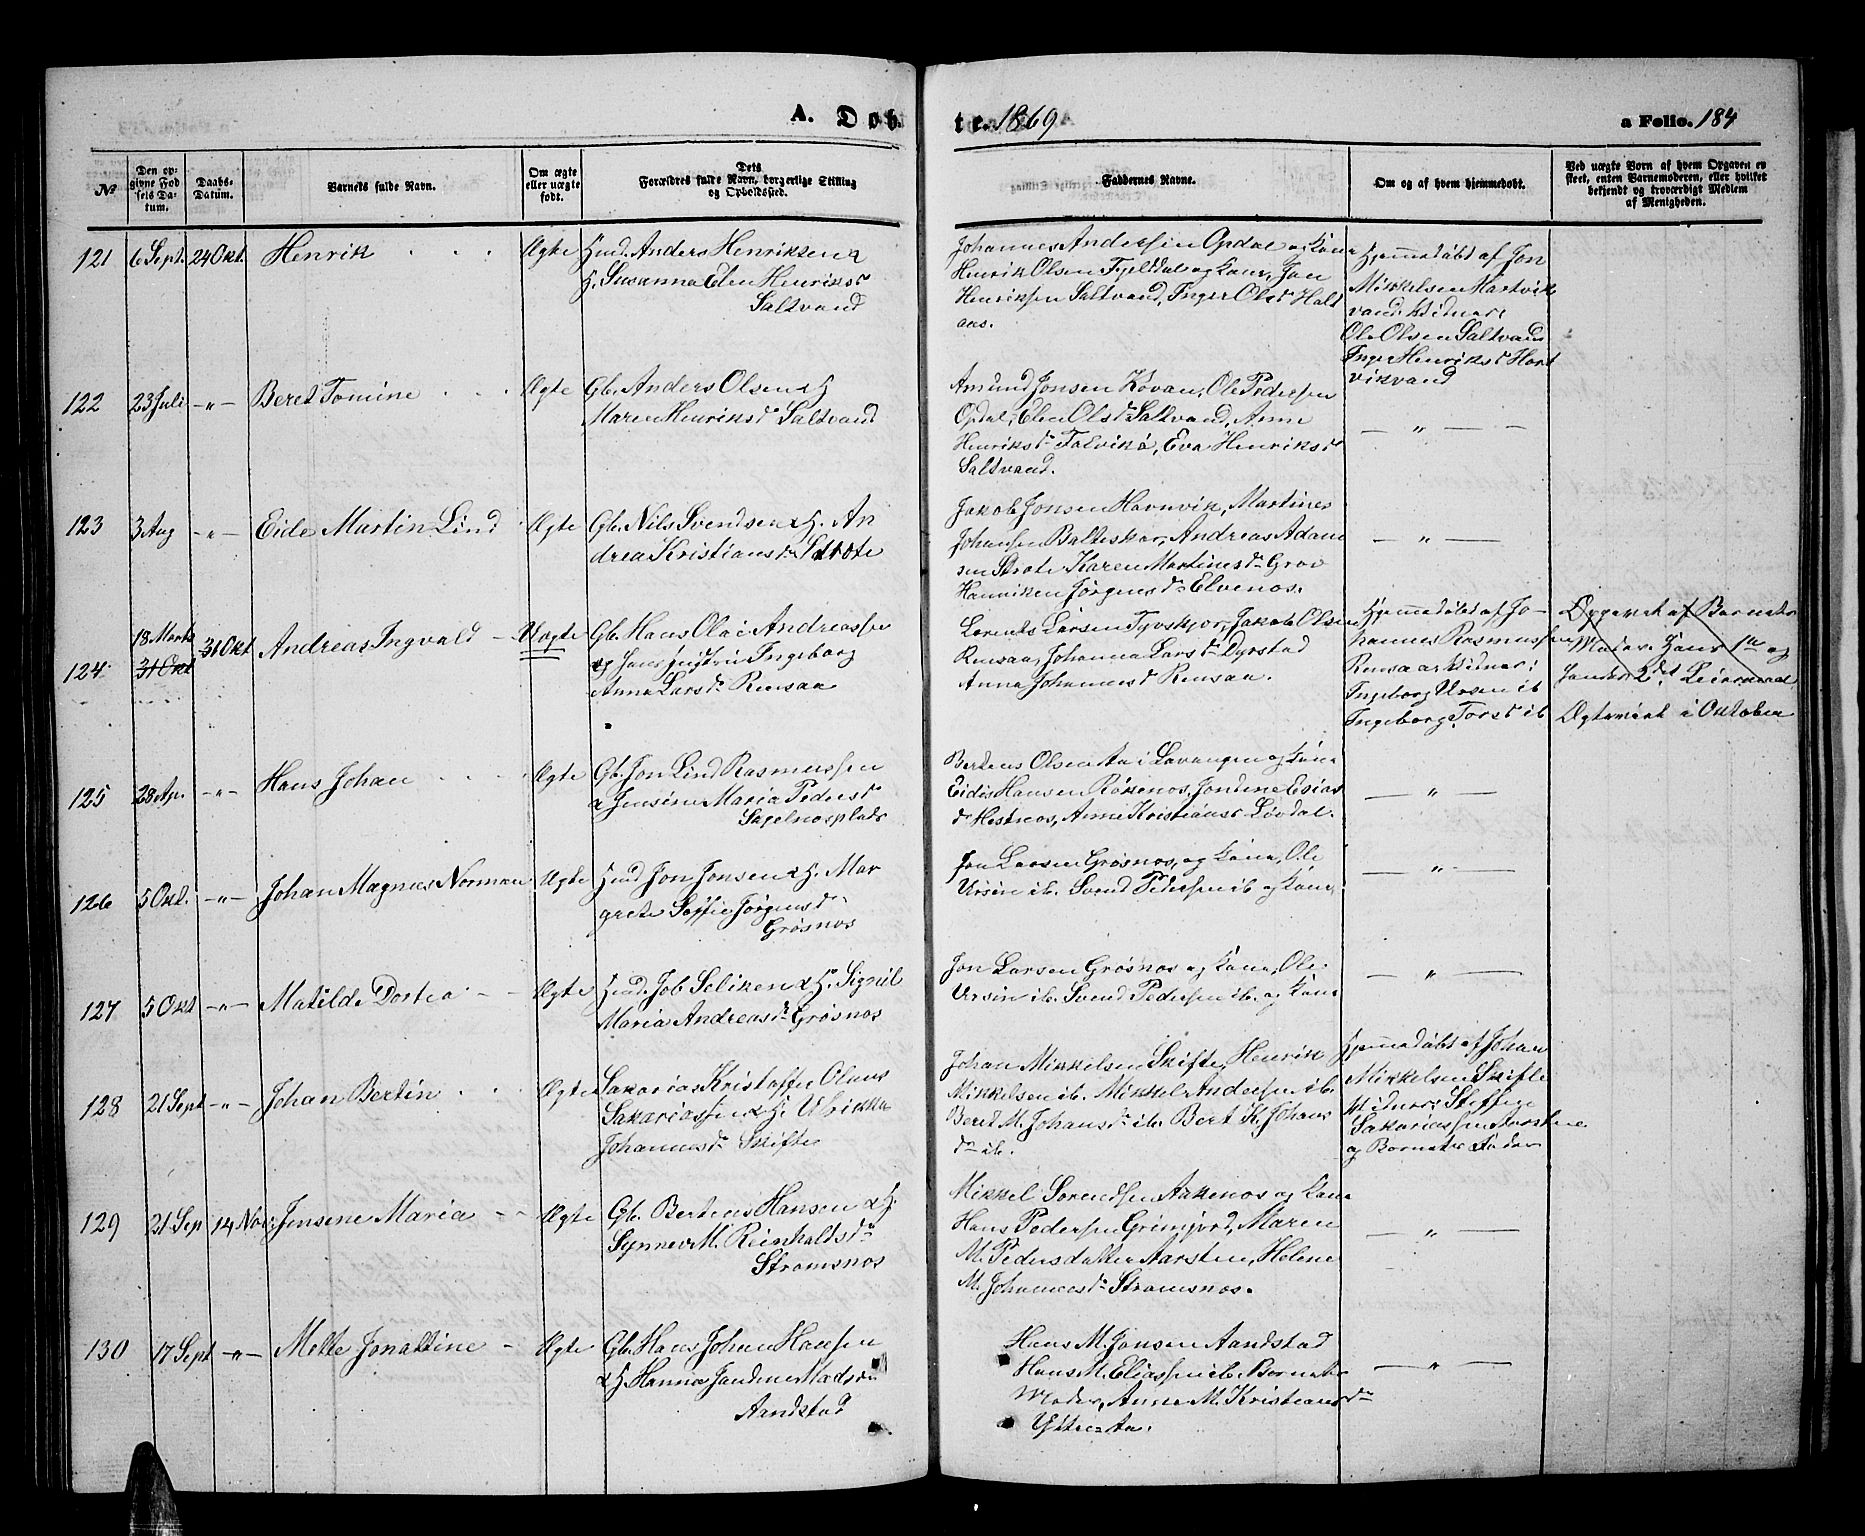 A. Døb
te. 1869
a Folio. 184
№
Den op-
givne Fød
sels Da-
tum.
Daabs-
Datum.
Barnets fulde Navn.
Om ægte
eller uægte
født.
Dets
Forældres fulde Navn, borgerlige Stilling
og Opholdssted.
Faddernes Navne.
Om og af hvem hjemmedøbt.
Ved uægte Børn af hvem Opgaven er
skeet, enten Barnemoderen, eller hvilket
bekjendt og troværdigt Medlem
af Menigheden.
121 6 Sept. 24 Okt. Henrik Ægte
Hmd. Anders Henriksen &
H. Susanna Elen Henriksd
Saltvand
Johannes Andersen Opdal og Kone
Henrik Olsen Fjelddal og Kone, Jon
Henriksen Saltvand, Inger Olsd Hald
aas.
Hjemmedøbt af Jon
Mikkelsen Hartvik
vand. Vidner:
Ole Olsen Saltvand
Inger Henriksd Hart
vikvand
122 23 Juli -"- Beret Tomine Ægte
Gb. Anders Olsen & H
Maren Henriksd Saltvand
Amund Jonsen Kovan, Ole Pedersen
Opdal, Elen Olsd Saltvand, Anne
Henriksd Talvikø, Eva Henriksd
Saltvand.
— " —
123 3 Aug -"- Eide Martin Lind Ægte
Gb. Nils Svendsen & H. An
drea Kristiansd Strote
Jakob Jonsen Havnvik, Martines
Johansen Balteskar, Andreas Adam
sen Strote Karen Martinesd Grov
Hanniken Jørgensd Elvenes.
— " —
124 18 Marts
31 Okt
31 Okt Andreas Ingvald Uægte
Gb. Hans Olai Andreassen
og Hans Hustru Ingeborg
Anna Larsd Rensaa
Lorents Larsen Tyvskjær, Jakob Olsen
Rensaa, Johanna Larsd Dyrstad
Anna Johannesd Rensaa.
Hjemmedøbt af Jo-
hannes Rasmussen
Rensaa Vidner:
Ingeborg Ursin ib
Ingeborg Torsd ib
Opgivet af Barnets
Moder. Hans 1ste og
Hendes 2det Leiermaal
Ægteviet i Oktober
125 28 Ap. -"- Hans Johan Ægte
Gb. Jon Lind Rasmussen
& Jensine Maria Pedersd
Sagelnesplads
Bertens Olsen Aa i Lavangen og Kone
Eidis Hansen Røkenes, Jondine Esias
d Hestnes, Anne Kristiansd Løvdal.
— " —
126 5 Okt. -"- Johan Magnus Norman Ægte
Hmd Jon Jonsen & H. Mar
grete Soffie Jørgensd
Grøsnes
Jon Larsen Grøsnes, og Kone, Ole
Ursin ib. Svend Pedersen ib og Kone
— " —
127 5 Okt -"- Matilde Dortea Ægte
Hmd. Job Seliken & H. Signil
Maria Andreasd Grøsnes
Jon Larsen Grøsnes og Kone, Ole
Ursin ib. Svend Pedersen ib. og Kone
— " —
128 21 Sept -"- Johan Bertin Ægte
Sakarias Kristoffer Olaus
Sakariassen & H. Ulrikka
Johannesd Skifte
Johan Mikkelsen Skifte, Henrik
Mikkelsen ib. Mikkel Andersen ib.
Beret M. Johansd ib. Bert K. Johans
d ib.
Hjemmedøbt af Johan
Mikkelsen Skifte
Vidner: Steffen
Sakariassen Aarstene
og Barnets Fader
129 21 Sep 14 Nov: Jensene Maria Ægte
Gb. Berteus Hansen & H.
Synnev M. Reinholdtsd
Stromsnes
Mikkel Sorendsen Aakenes og Kone
Hans Pedersen Grimjord, Maren
M. Pedersdatter Aarsten, Helene
M. Johannesd Stromsnes.
— " —
130 17 Sept -"- Mette Jonattine Ægte
Gb. Hans Johan Hansen
& H. Hanna Jondine Madsd
Aandstad
Hans M. Jonsen Aandstad
Hans M. Eliassen ib. Barnets
Moder, Anne M. Kristiansd
Yttre-Aa.
— " —